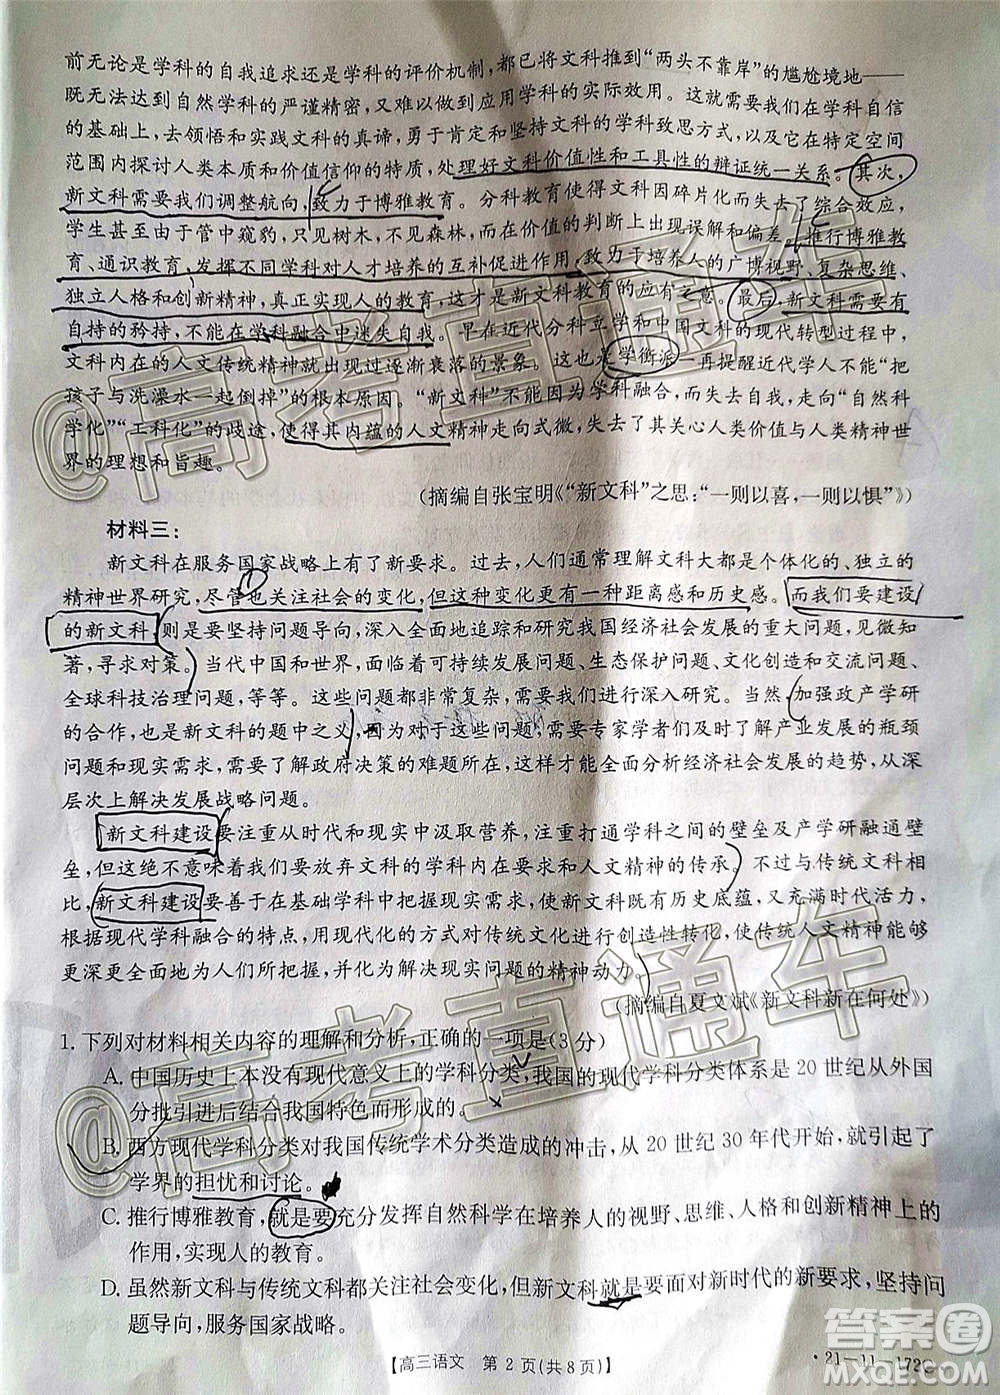 前无论是学科的自我追求还是学科的评价机制,都已将文科推到“两头不靠岸”的尴尬境地——
既无法达到自然学科的严谨精密,又难以做到应用学科的实际效用。这就需要我们在学科自信
的基础上,去领悟和实践文科的真谛,勇于肯定和坚持文科的学科致思方式,以及它在特定空间
范围内探讨人类本质和价值信仰的特质,处理好文科价值性和工具性的辩证统一关系。其次,
新文科需要我们调整航向,致力于博雅教育。分科教育使得文科因碎片化而失去了综合效应,
学生甚至由于管中窥豹,只见树木,不见森林,而在价值的判断上出现误解和偏差。推行博雅教
育、通识教育,发挥不同学科对人才培养的互补促进作用,致力于培养人的广博视野、复杂思维、
独立人格和创新精神,真正实现人的教育,这才是新文科教育的应有之意。最后,新文科需要有
自持的矜持,不能在学科融合中迷失自我。早在近代分科立学和中国文科的现代转型过程中,
文科内在的人文传统精神就已经出现过逐渐衰落的景象。这也是学衡派一再提醒近代学人不能“把
孩子与洗澡水一起倒掉”的根本原因。“新文科”不能因为学科融合,而失去自我,走向“自然科
学化”“工科化”的歧途,使得其内蕴的人文精神走向式微,失去了其关心人类价值与人类精神世
界的理想和旨趣。
(摘编自张宝明《“新文科”之思:“一则以喜,一则以惧”》)
材料三:
新文科在服务国家战略上有了新要求。过去,人们通常理解文科大都是个体化的、独立的
精神世界研究,尽管也关注社会的变化,但这种变化更有一种距离感和历史感。而我们要建设
的新文科,则是要坚持问题导向,深入全面地追踪和研究我国经济社会发展的重大问题,见微知
著,寻求对策。当代中国和世界,面临着可持续发展问题、生态保护问题、文化创造和交流问题、
全球科技治理问题,等等。这些问题都非常复杂,需要我们进行深入研究。当然,加强政产学研
的合作,也是新文科的题中之义,因为要解决这些问题,需要专家学者们及时了解产业发展的瓶颈
问题和问题,需要了解政府决策的难题所在,这样才能全面分析经济社会发展的趋势,从深
层次上解决发展战略问题。
新文科建设要注重从时代和现实中汲取营养,注重打通学科之间的壁垒及产学研融通壁
垒。但这绝不意味着我们要放弃文科的学科内在要求和人文精神的传承。不过与传统文科相
比,新文科建设要善于在基础学科中把握现实需求,使新文科既有历史底蕴,又充满时代活力,
根据现代学科融合的特点,用现代化的方式对传统文化进行创造性转化,使传统人文精神能够
更深更全面地为人们所把握,并化为解决现实问题的精神动力。
(摘编自夏文斌《新文科新在何处》)
1.下列对材料相关内容的理解和分析,正确的一项是(3分)
A.中国历史上本没有现代意义上的学科分类,我国的现代学科分类体系是20世纪从外国
分批引进后结合我国特色而形成的。
B.西方现代学科分类对我国传统学术分类造成的冲击,从20世纪30年代开始,就引起了
学界的担忧和讨论。
C.推行博雅教育,就是要充分发挥自然科学在培养人的视野、思维、人格和创新精神上的
作用,实现人的教育。
D.虽然新文科与传统文科都关注社会变化,但新文科就是要面对新时代的新要求,坚持问
题导向,服务国家战略。
【高三语文 第2页(共8页)】
·21-11-172C·
@高考直通车
@高考直通车
答案圈
MXQE.COM